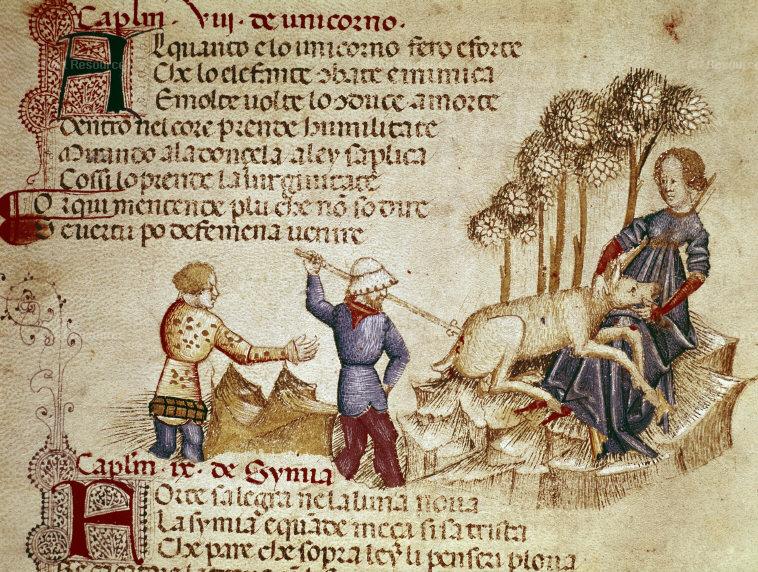 Caplm · viii · de unicorno ·
Alquanto e lo unicorno fero e forte
Che lo elefante abate e inimica
E molte volte lo conduce a morte
Dentro nel core prende humilitate
Quando a la doncela a ley saplica
Cossi lo prende la virginitate
Or qui mentende plu che nō so dire
De vertu po defemena venire
Caplm · ix · de Symia
Forte salegra ne la luna nova
La symia e quāde meça si satrista
Che pare che sopra ley li penseri plova